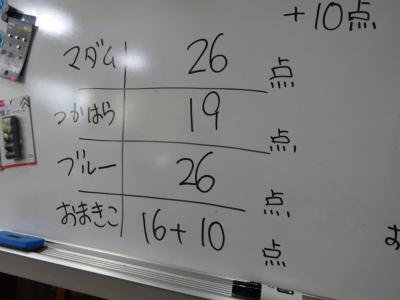 +10点
マダム 26 点
つかはら 19 点
ブルー 26 点
おまきこ 16+10 点